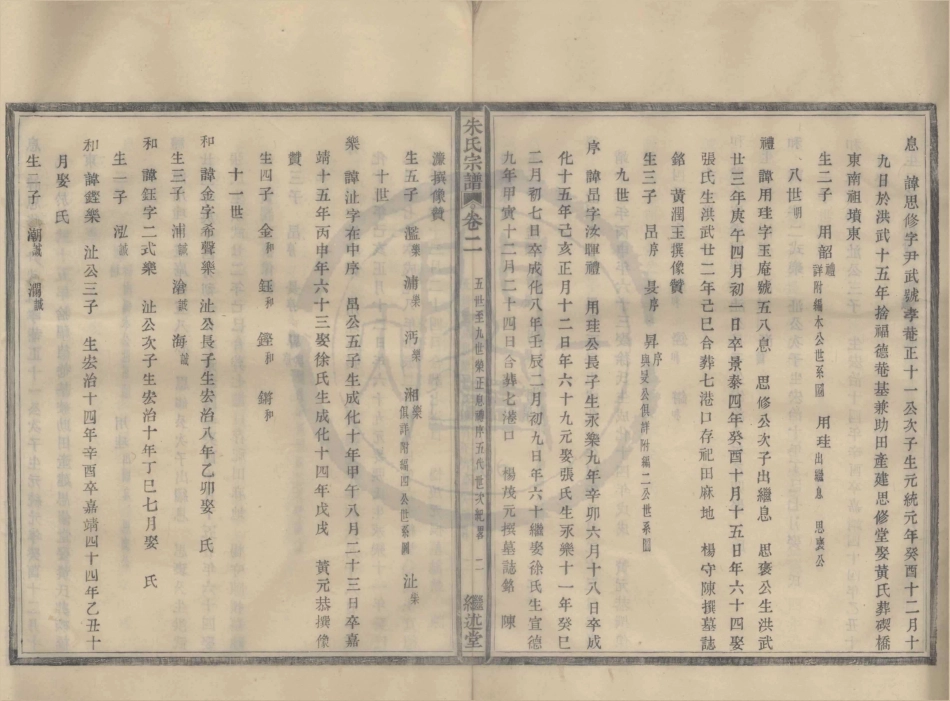 息 諱思修字尹武號孝菴正十一公次子生元統元年癸酉十二月十
九日於洪武十五年捨福德菴基兼助田產建思修堂娶黃氏葬碶橋
東南祖墳東
生二子 用韶禮詳附編水公世系圖 用珪出繼息 思褒公
八世明
禮 諱用珪字玉庵號五八息 思修公次子出繼息 思褒公生洪武
廿三年庚午四月初一日卒景泰四年癸酉十月十五日年六十四娶
張氏生洪武廿二年己巳合葬七港口存祀田麻地 楊守陳撰墓誌
銘 黃潤玉撰像贊
生三子 昂序 旻序 昇序與旻公俱詳附編二公世系圖
九世
序 諱昂字汝暉禮 用珪公長子生永樂九年辛卯六月十八日卒成
化十五年己亥正月十二日年六十九元娶張氏生永樂十一年癸巳
二月初七日卒成化八年壬辰二月初九日年六十繼娶徐氏生宣德
九年甲寅十二月二十四日合葬七港口 楊茂元撰墓誌銘 陳
朱氏宗譜 卷二 五世至九世榮正息禮序五代世次紀畧 二 繼述堂
濂撰像贊
生五子 濫樂 浦樂 沔樂 湘樂俱詳附編四公世系圖 沚樂
十世
樂 諱沚字在中序 昂公五子生成化十年甲午八月二十三日卒嘉
靖十五年丙申年六十三娶徐氏生成化十四年戊戌 黃元恭撰像
贊
生四子 金和 鈺和 鏗和 鏘和
十一世
和 諱金字希聲樂 沚公長子生宏治八年乙卯娶 氏
生三子 浦誠 滄誠 海誠
和 諱鈺字二式樂 沚公次子生宏治十年丁巳七月娶 氏
生一子 泓誠
和 諱鏗樂 沚公三子 生宏治十四年辛酉卒嘉靖四十四年乙丑十
月娶 氏
生二子 潮誠 瀾誠